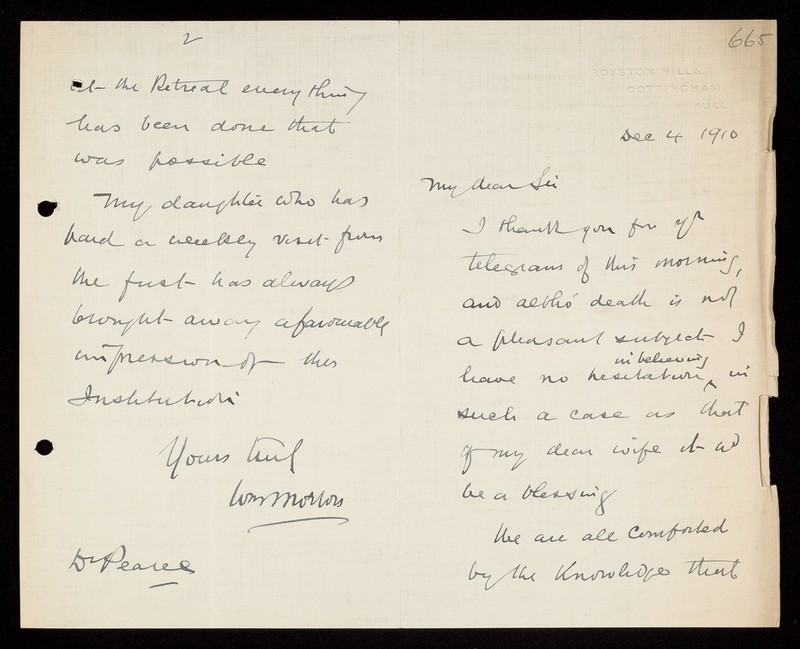 665
ROYSTON VILLA,
COTTINGHAM
HULL
Dec 4 1910
My dear Sir
I thank you for yr
telegram of this morning,
and altho' death is not
a pleasant subject I
have no hesitation in believing in
such a case as that
of my dear wife it wd
be a blessing
We are all comforted
by the knowledge that
2
at the Retreat everything
has been done that
was possible
My daughter who has
paid a weekly visit from
the first has always
brought away a favourable
impression of the
Institution
Yours truly
Wm Morton
Dr Pearce